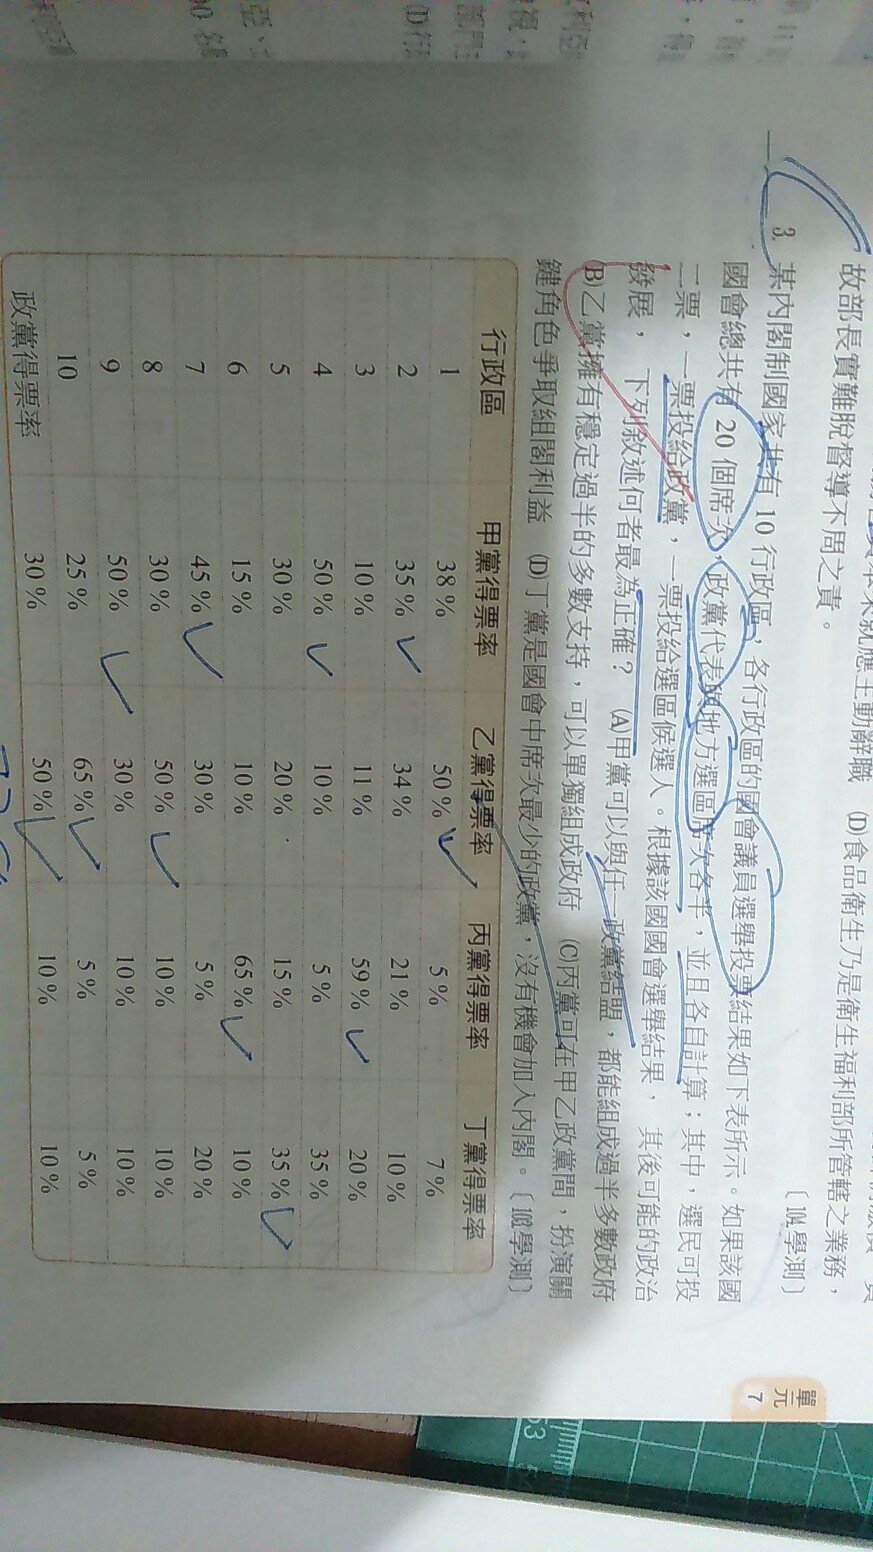 故部長實難脫督導不周之責。
主動辭職 (D)食品衛生乃是衛生福利部所管轄之業務，
〔104.學測〕
3. 某內閣制國家共有 10 行政區，各行政區的國會議員選舉投票結果如下表所示。如果該國
國會總共有 20 個席次，政黨代表與地方選區席次各半，並且各自計算；其中，選民可投
二票，一票投給政黨，一票投給選區候選人。根據該國國會選舉結果，其後可能的政治
發展，下列敘述何者最為正確？ (A)甲黨可以與任一政黨結盟，都能組成過半多數政府
(B)乙黨擁有穩定過半的多數支持，可以單獨組成政府 (C)丙黨可在甲乙政黨間，扮演關
鍵角色爭取組閣利益 (D)丁黨是國會中席次最少的政黨，沒有機會加入內閣。〔103.學測〕
行政區 甲黨得票率 乙黨得票率 丙黨得票率 丁黨得票率
1 38% 50% 5% 7%
2 35% 34% 21% 10%
3 10% 11% 59% 20%
4 50% 10% 5% 35%
5 30% 20% 15% 35%
6 15% 10% 65% 10%
7 45% 30% 5% 20%
8 30% 50% 10% 10%
9 50% 30% 10% 10%
10 25% 65% 5% 5%
政黨得票率 30% 50% 10% 10%
單元
7